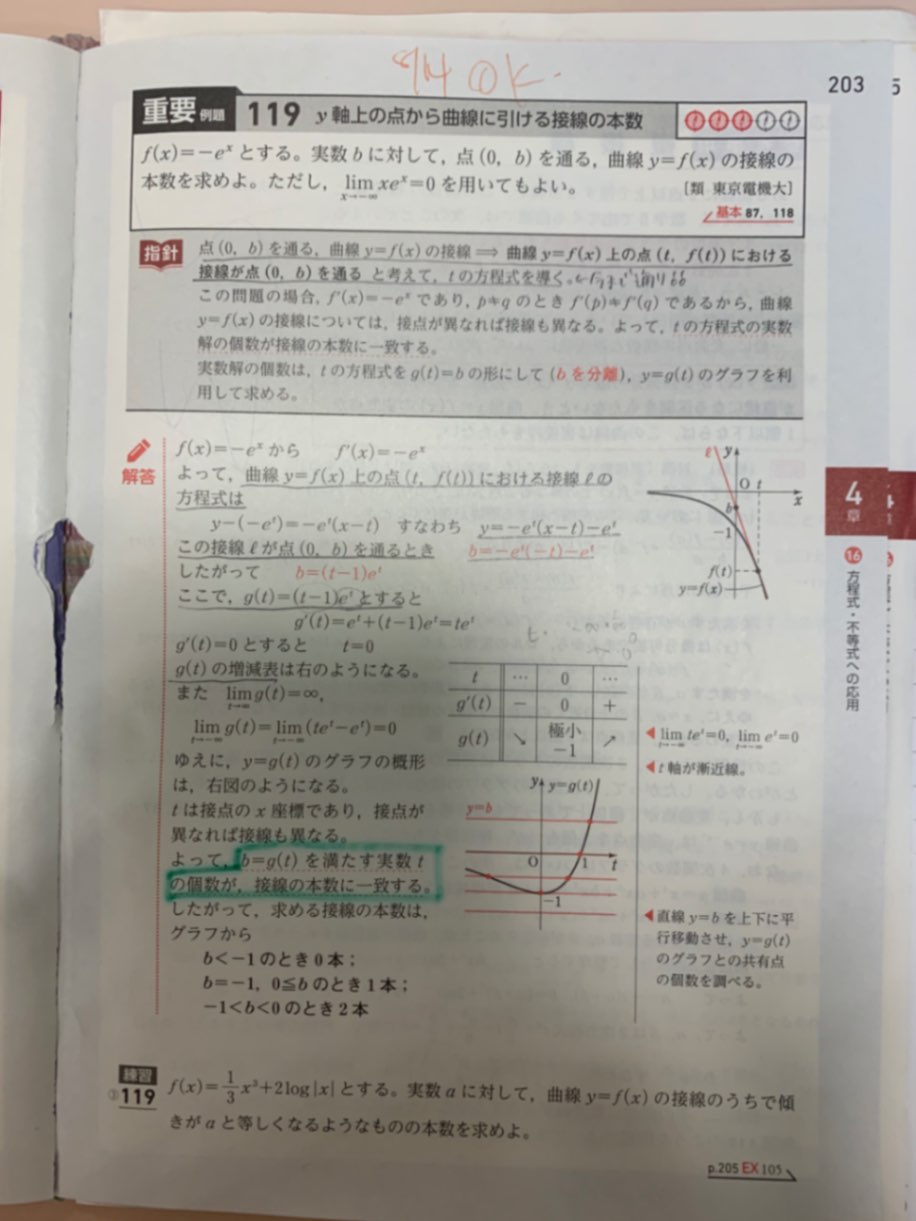 8/4 OK.
203
5
重要 例題 119 y軸上の点から曲線に引ける接線の本数
f(x)=-eˣとする。実数bに対して，点(0, b)を通る，曲線y=f(x)の接線の
本数を求めよ。ただし， lim[x→-∞] xeˣ=0 を用いてもよい。
[類 東京電機大]
基本 87, 118
指針
点(0, b)を通る，曲線y=f(x)の接線 ⟹ 曲線y=f(x)上の点(t, f(t))における
接線が点(0, b)を通る と考えて，tの方程式を導く。
この問題の場合，f'(x)=-eˣであり，p≠qのときf'(p)≠f'(q)であるから，曲線
y=f(x)の接線については，接点が異なれば接線も異なる。よって，tの方程式の実数
解の個数が接線の本数に一致する。
実数解の個数は，tの方程式をg(t)=bの形にして(bを分離)，y=g(t)のグラフを利
用して求める。
解答
f(x)=-eˣから f'(x)=-eˣ
よって，曲線y=f(x)上の点(t, f(t))における接線ℓの
方程式は
y-(-eᵗ)=-eᵗ(x-t) すなわち y=-eᵗ(x-t)-eᵗ
この接線ℓが点(0, b)を通るとき b=-eᵗ(-t)-eᵗ
したがって b=(t-1)eᵗ
ここで，g(t)=(t-1)eᵗとすると
g'(t)=eᵗ+(t-1)eᵗ=teᵗ
g'(t)=0とすると t=0
g(t)の増減表は右のようになる。
また lim[t→∞] g(t)=∞,
lim[t→-∞] g(t)=lim[t→-∞] (teᵗ-eᵗ)=0
ゆえに，y=g(t)のグラフの概形
は，右図のようになる。
tは接点のx座標であり，接点が
異なれば接線も異なる。
よって，b=g(t)を満たす実数t
の個数が，接線の本数に一致する。
したがって，求める接線の本数は，
グラフから
b<-1のとき0本；
b=-1, 0≦bのとき1本；
-1<b<0のとき2本
ℓ y
O t x
b
-1
f(t)
y=f(x)
t … 0 …
g'(t) - 0 +
g(t) ↘ 極小 -1 ↗
y y=g(t)
y=b
O 1 t
-1
◀ lim[t→-∞] teᵗ=0, lim[t→-∞] eᵗ=0
◀t軸が漸近線。
◀直線y=bを上下に平
行移動させ，y=g(t)
のグラフとの共有点
の個数を調べる。
4
章
16
方程式・不等式への応用
練習
③119
f(x)=1/3 x³+2log|x|とする。実数aに対して，曲線y=f(x)の接線のうちで傾
きがaと等しくなるようなものの本数を求めよ。
p.205 EX105